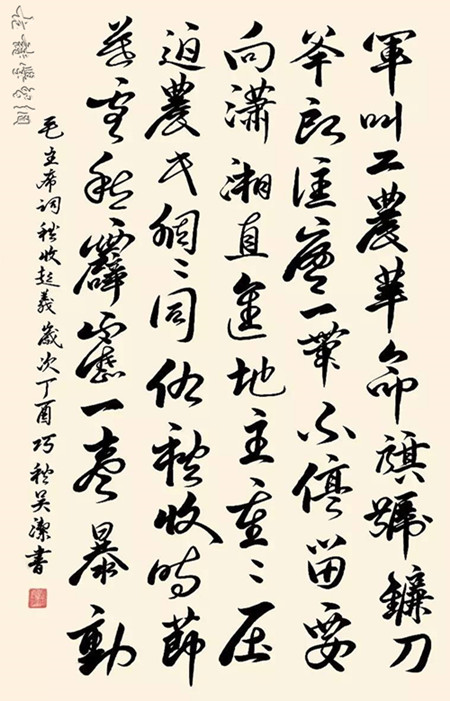 軍叫工農革命旗號鐮刀
斧頭匡廬一帶不停留要
向瀟湘直進地主重〻壓
迫農民個〻同仇秋收時節
暮雲愁霹靂一聲暴動
毛主席词秋收起義歲次丁酉巧秋吴潔書